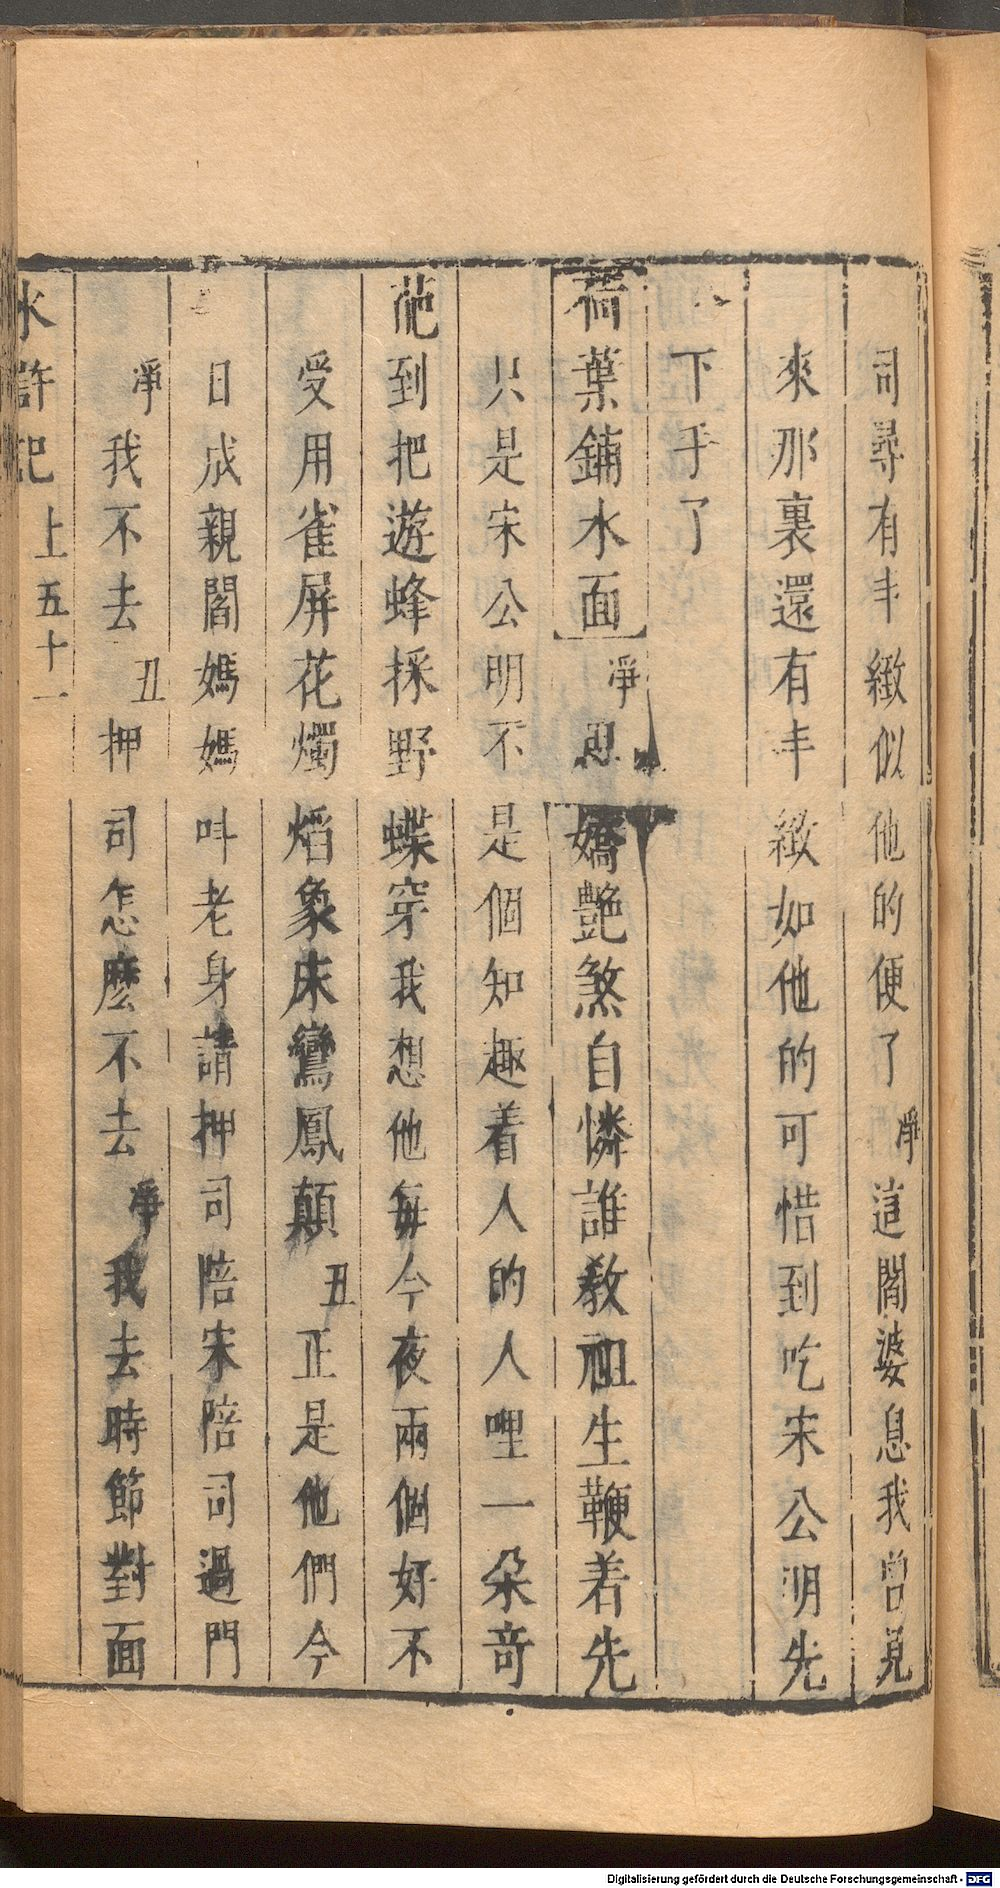 司尋有丰緻似他的便了淨這閻婆息我曾見
來那裏還有丰緻如他的可惜到吃宋公明先
下手了
荷葉鋪水面淨思嬌艷煞自憐誰教祖生鞭着先
只是宋公明不是個知趣着人的人哩一朵奇
葩到把遊蜂採野蝶穿我想他每今夜兩個好不
受用雀屏花燭熖象床鸞鳳顛丑正是他們今
日成親閻媽媽叫老身請押司陪宋陪司過門
淨我不去丑押司怎麽不去淨我去時節對面
水滸記 上五十一
Digitalisierung gefördert durch die Deutsche Forschungsgemeinschaft - DFG